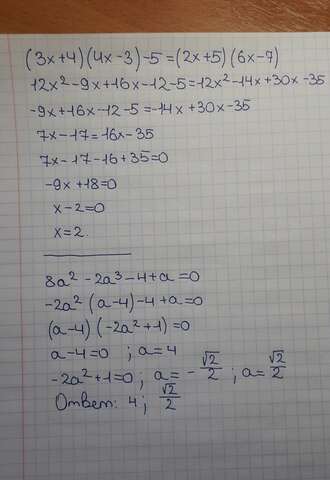 (3x+4)(4x-3)-5=(2x+5)(6x-7)
12x²-9x+16x-12-5=12x²-14x+30x-35
-9x+16x-12-5=-14x+30x-35
7x-17=16x-35
7x-17-16+35=0
-9x+18=0
x-2=0
x=2.
8a²-2a³-4+a=0
-2a²(a-4)-4+a=0
(a-4)(-2a²+1)=0
a-4=0 ; a=4
-2a²+1=0; a=-√2/2; a=√2/2
Ответ: 4; √2/2